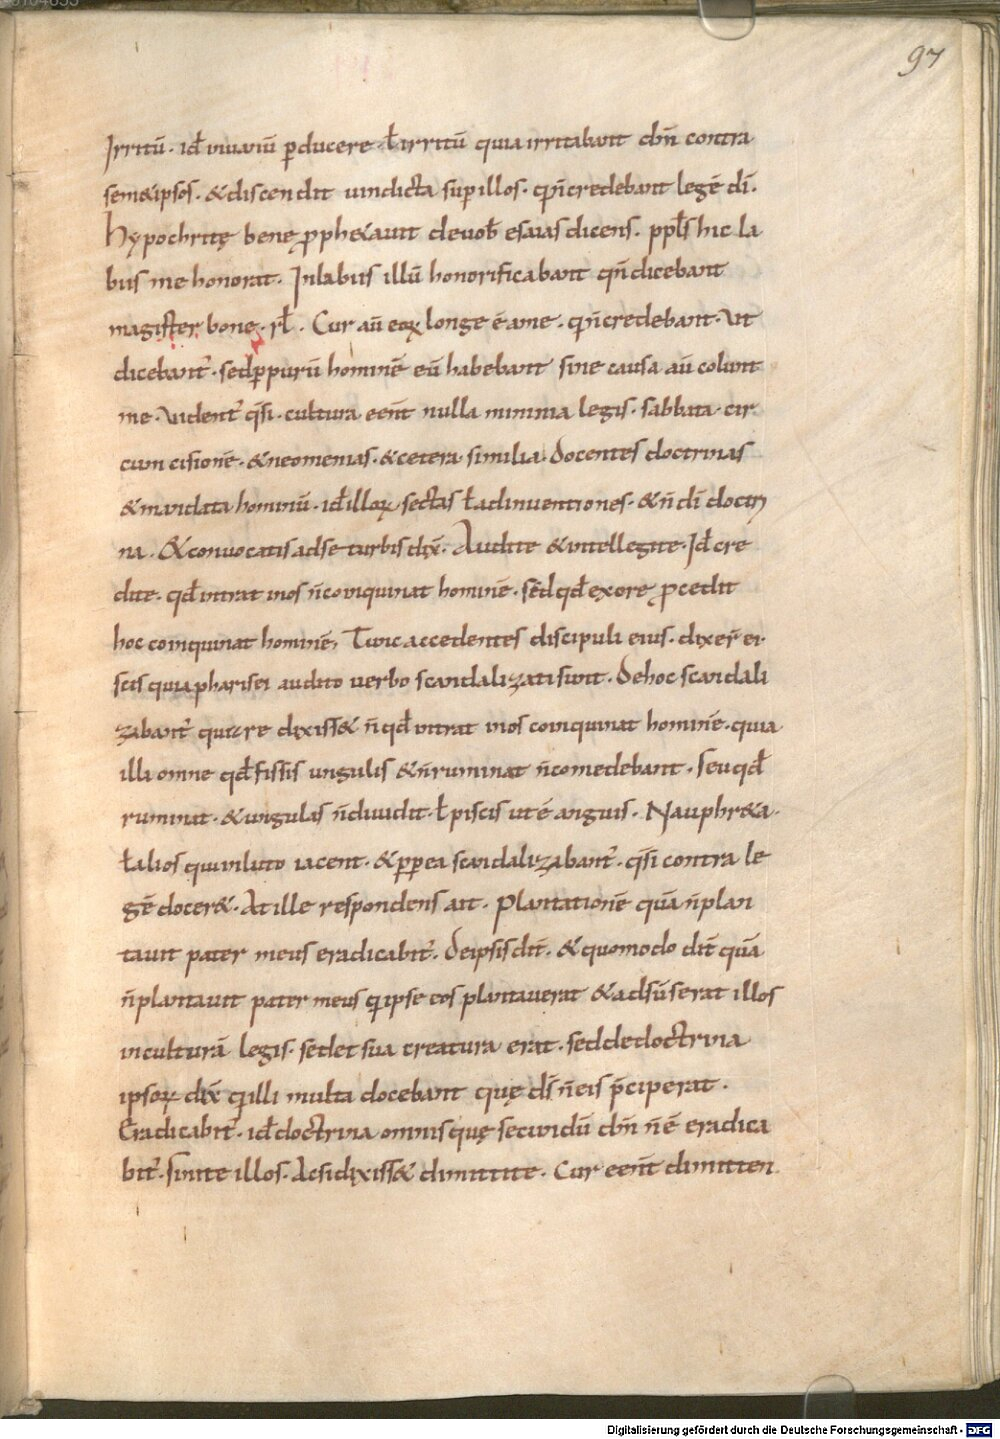 97
Irritū· id ÷ inuanū ꝑducere· ł irritū quia irritabant dn̄m contra
sem&ipsos· & discendit uindicta sup illos· q̄ n̄ credebant legē dī·
hẏpochritę bene ꝓph&auit deuob̄ esaias dicens· ppl̄s hic la
biis me honorat· Inlabiis illū honorificabant qn̄ dicebant
magister bone· rł· Cur aū eoꝝ longe ē ame· q̄ n̄ credebant· Vt
dicebant᷑· sed ꝓ purū hominē eū habebant sine causa aū colunt
me· Vident᷑ q̄si· cultura eēnt nulla minima legis· sabbata· cir
cum cisionē· & neomenias· & cetera similia· Docentes doctrinas
& mandata hominū· id illoꝝ sectas ł adinuentiones· & n̄ dī doctri
na· & conuocatis adse turbis dix̄· Audite & intellegite· Id cre
dite· qđ intrat inos n̄ coinquinat hominē· sed qđ exore ꝓcedit
hoc coinquinat hominē, Tunc accedentes discipuli eius· dixer̄ ei·
scis quia pharisei audito uerbo scandalizati sunt· Dehoc scandali
zabant᷑ quare dixiss& n̄ qđ intrat inos coinquinat hominē· quia
illi omne qđ fissis ungulis & n̄ ruminat n̄ comedebant· seu qđ
ruminat· & ungulas n̄ diuidit· ł piscis ut ē anguis· Nauphr&a·
ł alios qui inluto iacent· & ꝓpea scandalizabant᷑· q̄si contra le
gē docer&· At ille respondens ait· Plantationē quā n̄ plan
tauit pater meus eradicabit᷑· deipsis dit̄· & quomodo dit̄ quā
n̄ plantauit pater meus q̄ ipse eos plantauerat & adsūserat illos
inculturā legis· sed et sua creatura erat· sed dedoctrina
ipsoꝝ dix̄ q̄ illi multa docebant quę ds̄ n̄ eis p̄ciperat·
Eradicabit᷑· id doctrina omnis quę secundū dn̄m n̄ ē eradica
bit᷑· sinite illos· Acsi dixiss& dimittite· Cur eēnt dimitten
Digitalisierung gefördert durch die Deutsche Forschungsgemeinschaft - DFG